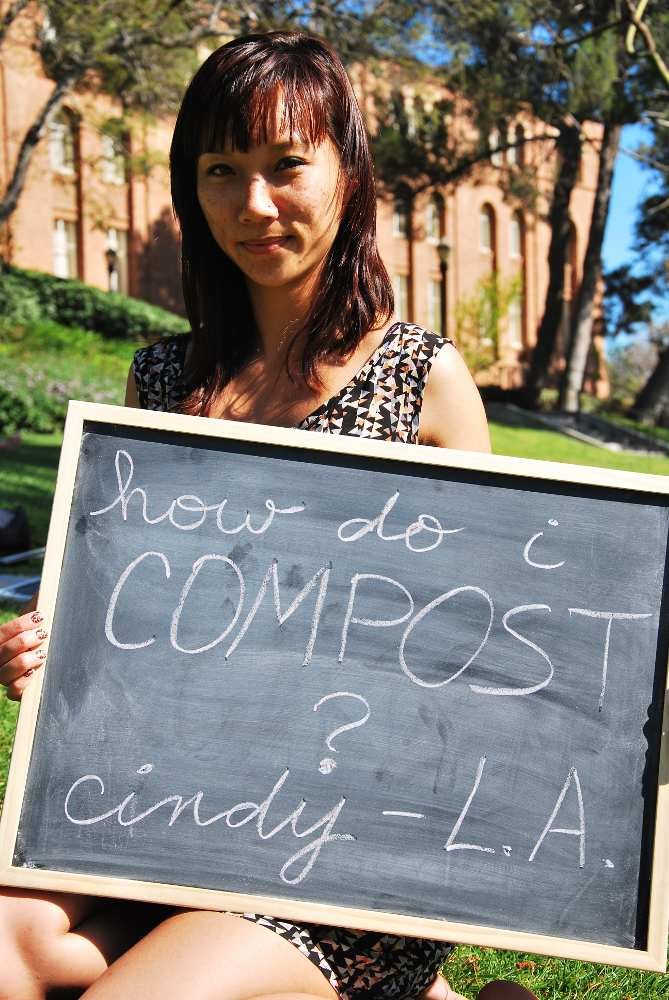 how do i
COMPOST
?
cindy - L.A.